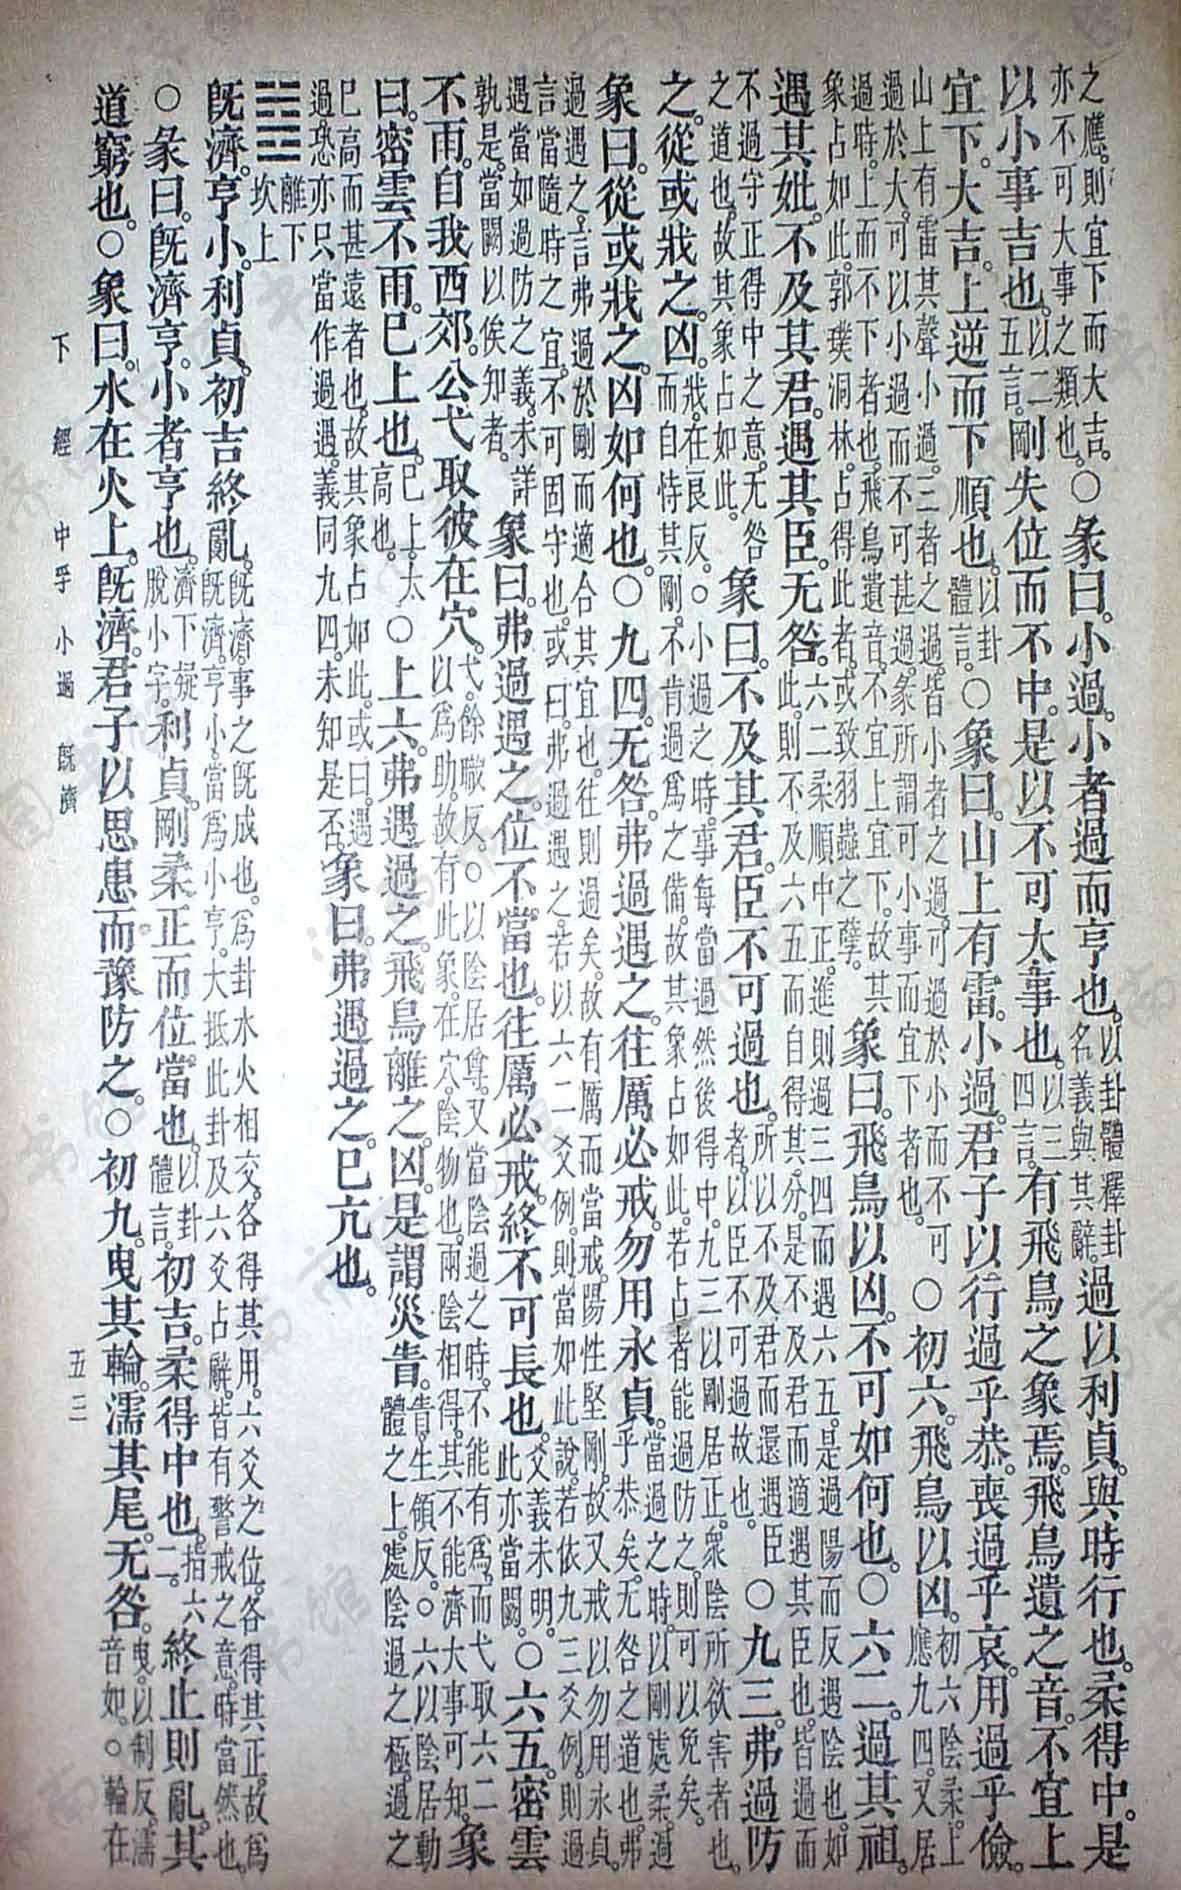 之應。則宜下而大吉。亦不可大事之類也。○彖曰。小過。小者過而亨也。以卦體釋卦名義與其辭。過以利貞。與時行也。柔得中。是
以小事吉也。以二五言。剛失位而不中。是以不可大事也。以三四言。有飛鳥之象焉。飛鳥遺之音。不宜上
宜下。大吉。上逆而下順也。以卦體言。○象曰。山上有雷。小過。君子以行過乎恭。喪過乎哀。用過乎儉。
山上有雷其聲小過。三者之過。皆小者之過。可過於小而不可過於大。可以小過而不可甚過。彖所謂可小事而宜下者也。○初六。飛鳥以凶。初六陰柔。上應九四。又居
過時。上而不下者也。飛鳥遺音。不宜上宜下。故其象占如此。郭璞洞林。占得此者。或致羽蟲之孽。象曰。飛鳥以凶。不可如何也。○六二。過其祖。
遇其妣。不及其君。遇其臣。无咎。六二柔順中正。進則過三四而遇六五。是過陽而反遇陰也。如此。則不及六五而自得其分。是不及君而適遇其臣也。皆過而
不過守正得中之意。无咎之道也。故其象占如此。象曰。不及其君。臣不可過也。所以不及君而還遇臣者。以臣不可過故也。○九三。弗過防
之。從或戕之。凶。戕。在良反。○小過之時。事每當過。然後得中。九三以剛居正。衆陰所欲害者也。而自恃其剛。不肯過爲之備。故其象占如此。若占者能過防之。則可以免矣。
象曰。從或戕之。凶如何也。○九四。无咎。弗過遇之。往厲必戒。勿用永貞。當過之時。以剛處柔。過乎恭矣。无咎之道也。弗
過遇之。言弗過於剛而適合其宜也。往則過矣。故有厲而當戒。陽性堅剛。故又戒以勿用永貞。言當隨時之宜。不可固守也。或曰。弗過遇之。若以六二爻例。則當如此說。若依九三爻例。則過
遇當如過防之義。未詳孰是。當闕以俟知者。象曰。弗過遇之。位不當也。往厲必戒。終不可長也。爻義未明。此亦當闕。○六五。密雲
不雨。自我西郊。公弋取彼在穴。弋。餘職反。○以陰居尊。又當陰過之時。不能有爲。而弋取六二以爲助。故有此象。在穴。陰物也。兩陰相得。其不能濟大事可知。象
曰。密雲不雨。已上也。已上。太高也。○上六。弗遇過之。飛鳥離之。凶。是謂災眚。眚。生領反。○六以陰居動體之上。處陰過之極。過之
已高而甚遠者也。故其象占如此。或曰。遇過。恐亦只當作過遇。義同九四。未知是否。象曰。弗遇過之。已亢也。
䷾離下坎上
旣濟。亨小。利貞。初吉終亂。旣濟。事之旣成也。爲卦水火相交。各得其用。六爻之位。各得其正。故爲旣濟。亨小。當爲小亨。大抵此卦及六爻占辭。皆有警戒之意。時當然也。
○彖曰。旣濟亨。小者亨也。濟下疑脫小字。利貞。剛柔正而位當也。以卦體言。初吉。柔得中也。指六二。終止則亂。其
道窮也。○象曰。水在火上。旣濟。君子以思患而豫防之。○初九。曳其輪。濡其尾。无咎。曳。以制反。濡音如。○輪在
下經 中孚 小過 旣濟 五三